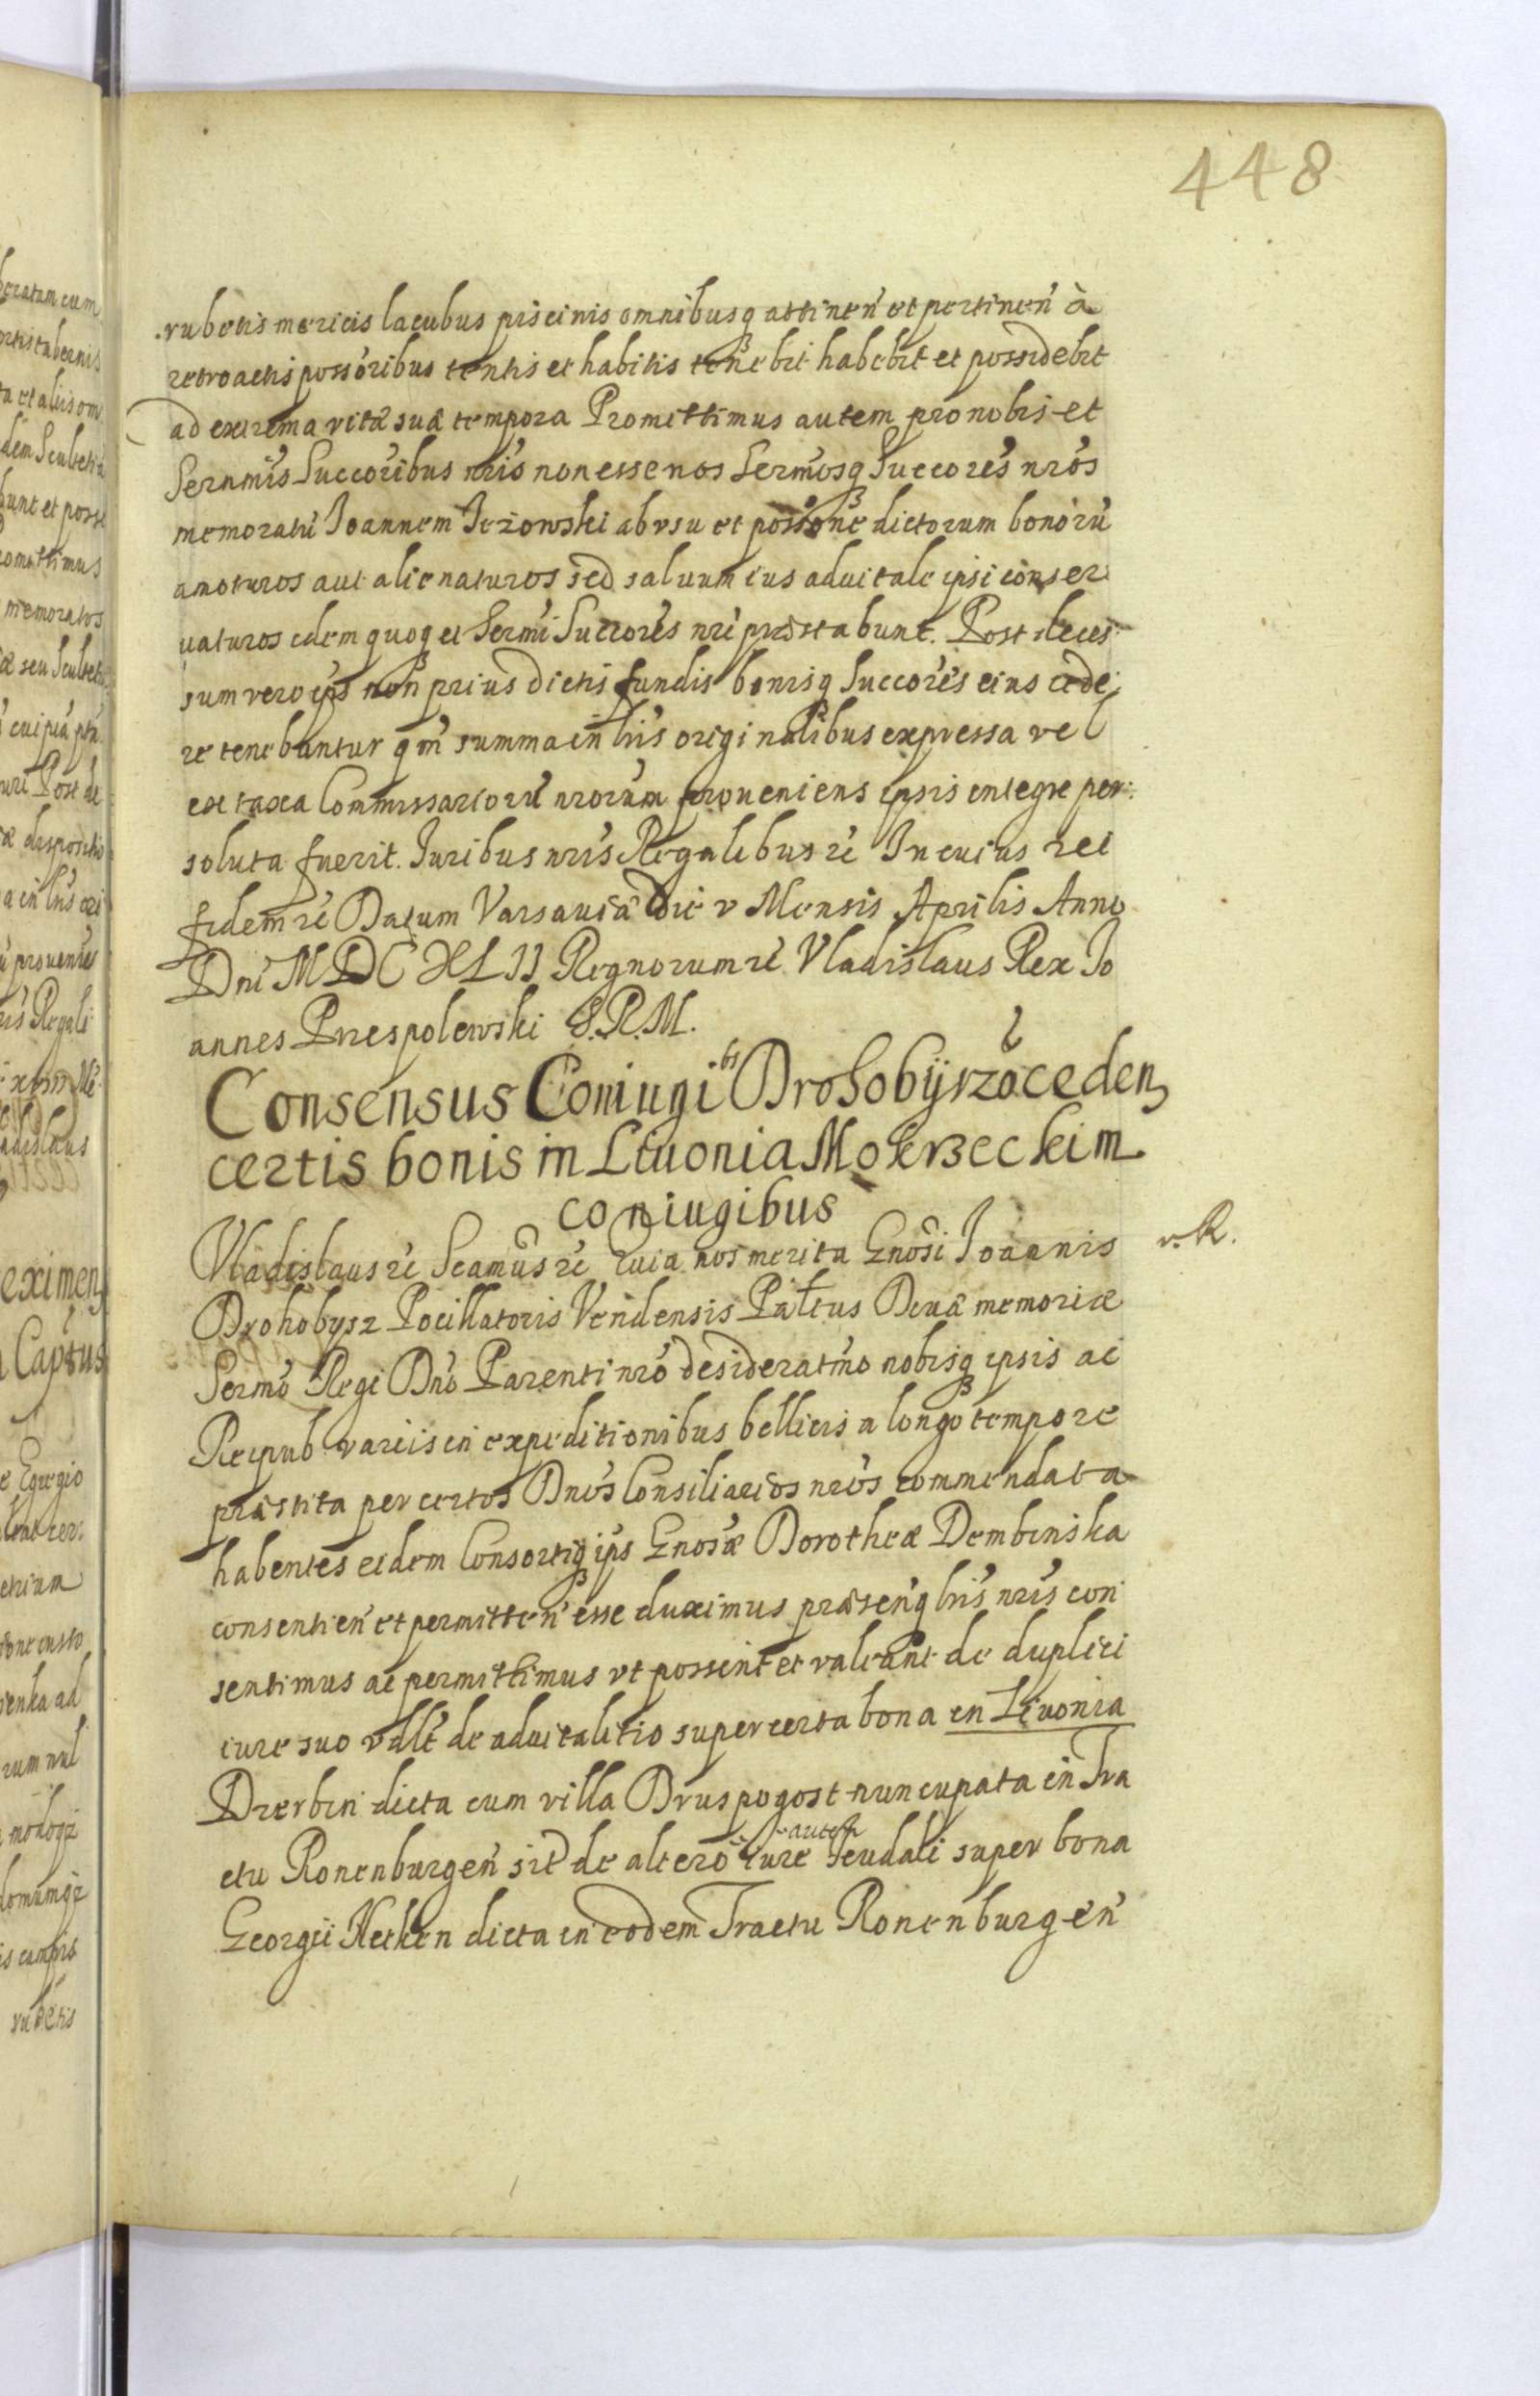 448
rubetis mericis lacubus piscinis omnibusq attinen̄ et pertinen̄ à
retroactis possoribus tentis et habitis tenebit habebit et possidebit
ad extrema vitæ suæ tempora Promittimus autem pro nobis et
Sernmis Succoribus nris non esse nos Sermosq Succores nros
memoratū Joannem Jeżowski ab vsu et possone dictorum bonorū
amoturos aut alienaturos sed saluum ius aduitale ipsi conser
uaturos idem quoq et Sermi Succores nri præstabunt. Post deces
sum vero ips non prius dictis fundis bonisq Succores eius cede
re tenebuntur qm summa in lris originalibus expressa vel
ex taxa Commissariorū nrorum proueniens ipsis integre per
soluta fuerit. Juribus nris Regalibus rē In cuius rei
fidem rē Datum Varsauiæ die v Mensis Aprilis Anno
Dni MDCXLII Regnorum rē Vladislaus Rex Jo
annes Przespolewski S.R.M.
Consensus Coniugibs Drohobysz ceden
certis bonis in Liuonia Mokrzeckim
coniugibus
Vladislaus rē Seamus rē Quia nos merita Gnosi Joannis
r. R.
Drohobysz Pocillatoris Vendensis Paltus Diuæ memoriæ
Sermo Regi Dno Parenti nro desideratmo nobisq ipsis ac
Reipub variis in expeditionibus bellicis a longo tempore
præstita per certos Dnos Consiliarios nros commendata
habentes eidem Consortiq ips Gnosæ Dorotheæ Dembinska
consentien̄ et permitten̄ esse duximus præsenq lris nris con
sentimus ac permittimus vt possint et valeant de duplici
iure suo vdlt de aduitalitio super certa bona in Liuonia
Dzerbin dicta cum villa Druspogost nuncupata in Tra
ctu Ronenburgen̄ sit de altero autem iure feudali super bona
Georgii Netken dicta in eodem Tractu Ronenburgen̄